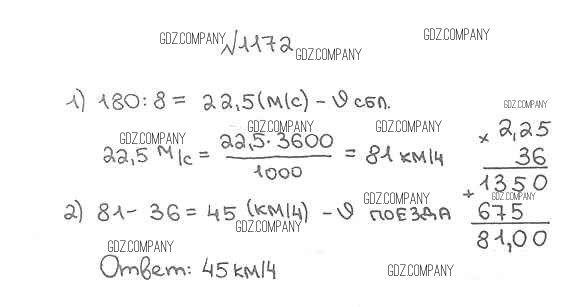 GDZ.COMPANY
GDZ.COMPANY
№1172
GDZ.COMPANY
1) 180:8 = 22,5 (м/с) - v сбл.
GDZ.COMPANY
GDZ.COMPANY
GDZ.COMPANY
GDZ.COMPANY
22,5 м/с = 22,5·3600 / 1000 = 81 км/ч
× 2,25
36
+ 1350
675
81,00
GDZ.COMPANY
GDZ.COMPANY
2) 81 - 36 = 45 (км/ч) - v поезда
GDZ.COMPANY
GDZ.COMPANY
Ответ: 45 км/ч
GDZ.COMPANY